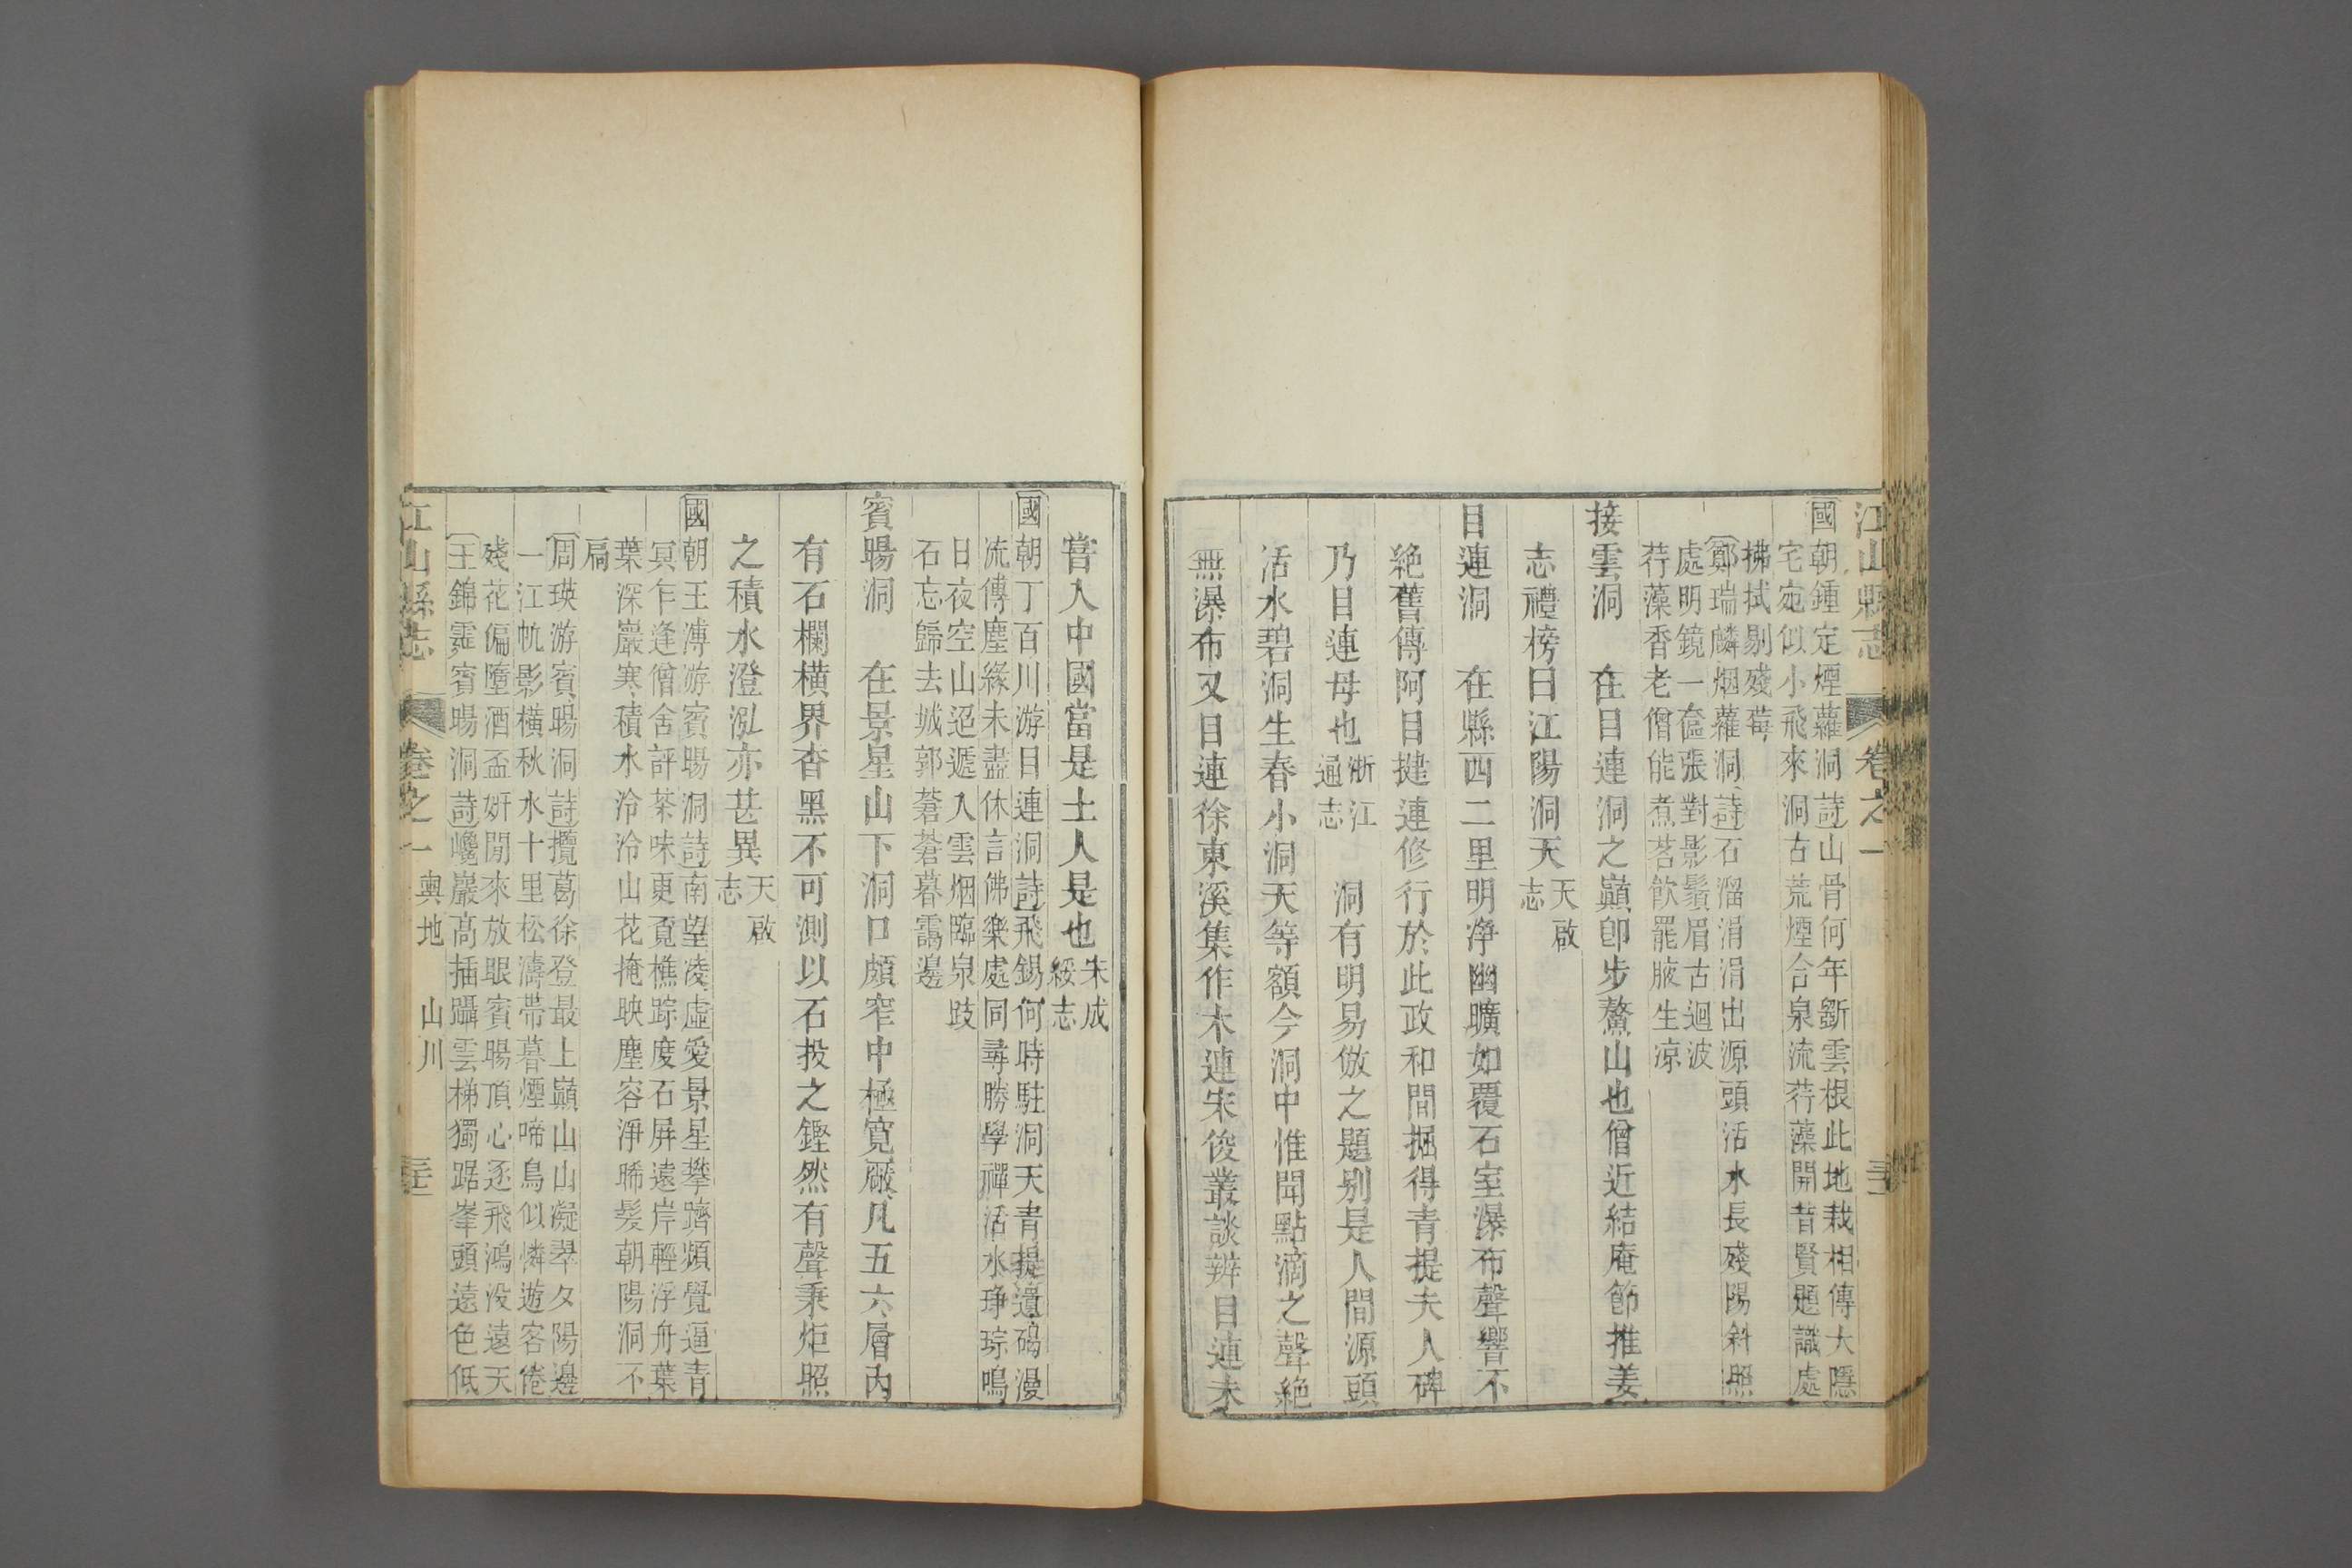 江山縣志 卷之一
國朝鍾定煙蘿洞詩山骨何年斵雲根此地栽相傳大隱
宅宛似小飛來洞古荒煙合泉流荇藻開昔賢題識處
拂拭剔殘莓
鄭瑞麟烟蘿洞詩石溜涓涓出源頭活水長殘陽斜照
處明鏡一奩張對影鬚眉古迴波
荇藻香老僧能煮茗飲罷腋生涼
接雲洞 在目連洞之巔卽步鰲山也僧近結庵節推姜
志禮榜曰江陽洞天天啟
志
目連洞 在縣西二里明淨幽曠如覆石室瀑布聲響不
絶舊傳阿目揵連修行於此政和間掘得青提夫人碑
乃目連母也浙江
通志 洞有明易倣之題别是人間源頭
活水碧洞生春小洞天等額今洞中惟聞點滴之聲絶
無瀑布又目連徐東溪集作木連宋俊叢談辨目連未
嘗入中國當是土人是也朱成
綏志
國朝丁百川游目連洞詩飛錫何時駐洞天青提遺碣漫
流傳塵緣未盡休言佛樂處同尋勝學禪活水琤琮鳴
日夜空山迢遞入雲烟臨泉跂
石忘歸去城郭蒼蒼暮靄邊
賓暘洞 在景星山下洞口頗窄中極寛厰凡五六層内
有石欄横界杳黑不可測以石投之鏗然有聲秉炬照
之積水澄泓亦甚異天啟
志
國朝王溥游賓暘洞詩南望凌虛愛景星攀躋頻覺逼青
冥乍逢僧舍評茶味更覔樵踪度石屏遠岸輕浮舟葉
葉深巖寒積水泠泠山花掩映塵容淨晞髮朝陽洞不
扃
周瑛游賓暘洞詩攬葛徐登最上巔山山凝翠夕陽邊
一江帆影横秋水十里松濤帯暮煙啼鳥似憐遊客倦
殘花偏墮酒盃妍閒來放眼賓暘頂心逐飛鴻没遠天
王錦霏賓暘洞詩巉巖高插躡雲梯獨踞峯頭遠色低
江山縣志 卷之一 輿地 山川